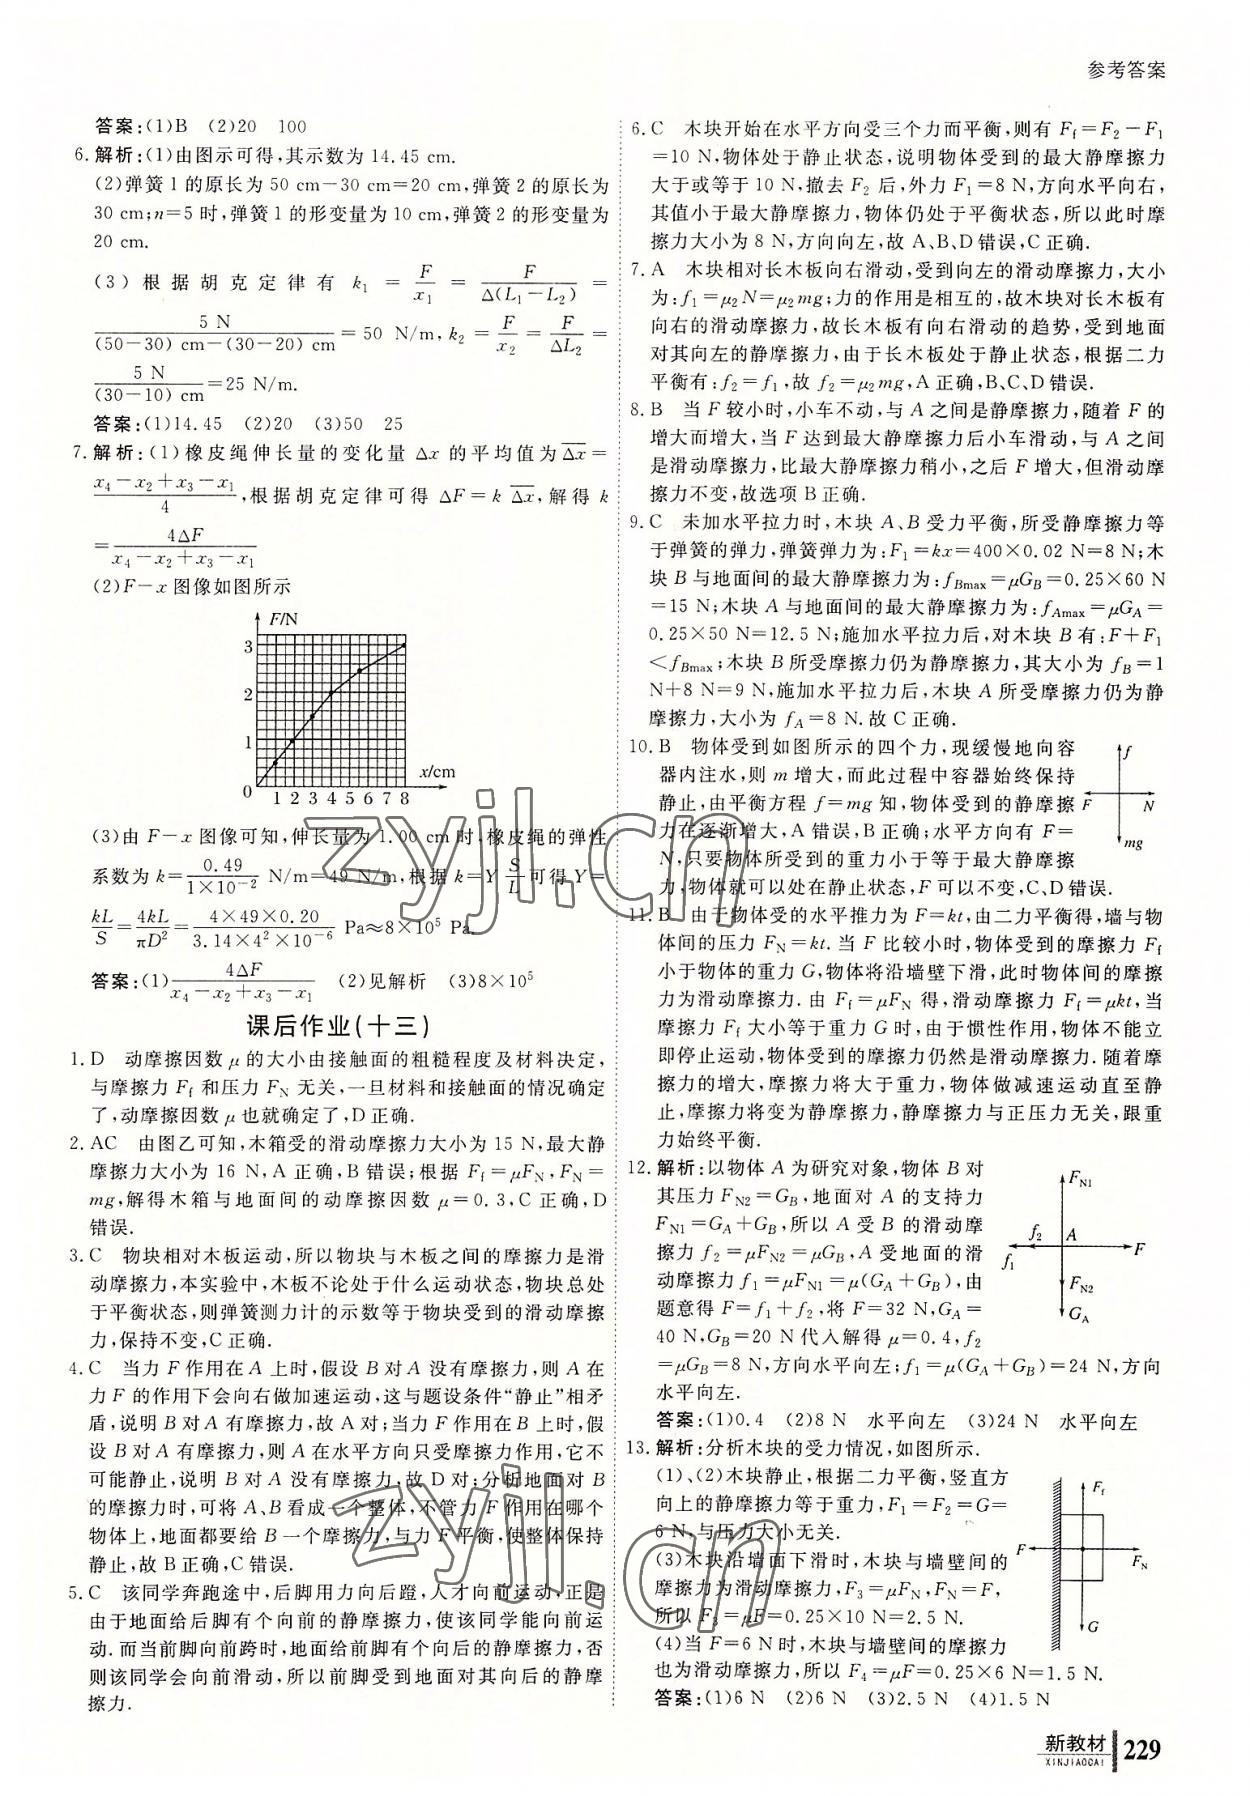 参考答案
答案:(1)B (2)20 100
6.解析:(1)由图示可得,其示数为14.45 cm.
(2)弹簧1的原长为50 cm-30 cm=20 cm,弹簧2的原长为
30 cm;n=5时,弹簧1的形变量为10 cm,弹簧2的形变量为
20 cm.
(3)根据胡克定律有 k₁ = F/x₁ = F/Δ(L₁-L₂) =
5 N/((50-30) cm-(30-20) cm)=50 N/m,k₂ = F/x₂ = F/ΔL₂ =
5 N/((30-10) cm)=25 N/m.
答案:(1)14.45 (2)20 (3)50 25
7.解析:(1)橡皮绳伸长量的变化量 Δx 的平均值为 Δx̅ =
(x₄-x₂+x₃-x₁)/4,根据胡克定律可得 ΔF=k Δx̅,解得 k
=4ΔF/(x₄-x₂+x₃-x₁)
(2)F-x图像如图所示
F/N
3
2
1
0
x/cm
1 2 3 4 5 6 7 8
(3)由 F-x 图像可知,伸长量为1.00 cm时,橡皮绳的弹性
系数为 k=0.49/(1×10⁻²) N/m=49 N/m,根据 k=Y S/L 可得 Y=
kL/S=4kL/πD²=(4×49×0.20)/(3.14×4²×10⁻⁶) Pa≈8×10⁵ Pa.
答案:(1)4ΔF/(x₄-x₂+x₃-x₁) (2)见解析 (3)8×10⁵
课后作业(十三)
1.D 动摩擦因数 μ 的大小由接触面的粗糙程度及材料决定,
与摩擦力 Ff 和压力 FN 无关,一旦材料和接触面的情况确定
了,动摩擦因数 μ 也就确定了,D正确.
2.AC 由图乙可知,木箱受的滑动摩擦力大小为15 N,最大静
摩擦力大小为16 N,A正确,B错误;根据 Ff=μFN,FN=
mg,解得木箱与地面间的动摩擦因数 μ=0.3,C正确,D
错误.
3.C 物块相对木板运动,所以物块与木板之间的摩擦力是滑
动摩擦力,本实验中,木板不论处于什么运动状态,物块总处
于平衡状态,则弹簧测力计的示数等于物块受到的滑动摩擦
力,保持不变,C正确.
4.C 当力 F 作用在 A 上时,假设 B 对 A 没有摩擦力,则 A 在
力 F 的作用下会向右做加速运动,这与题设条件“静止”相矛
盾,说明 B 对 A 有摩擦力,故 A 对;当力 F 作用在 B 上时,假
设 B 对 A 有摩擦力,则 A 在水平方向只受摩擦力作用,它不
可能静止,说明 B 对 A 没有摩擦力,故 D 对;分析地面对 B
的摩擦力时,可将 A、B 看成一个整体,不管力 F 作用在哪个
物体上,地面都要给 B 一个摩擦力,与力 F 平衡,使整体保持
静止,故 B 正确,C 错误.
5.C 该同学奔跑途中,后脚用力向后蹬,人才向前运动,正是
由于地面给后脚有个向前的静摩擦力,使该同学能向前运
动.而当前脚向前跨时,地面给前脚有个向后的静摩擦力,否
则该同学会向前滑动,所以前脚受到地面对其向后的静摩
擦力.
6.C 木块开始在水平方向受三个力而平衡,则有 Ff=F₂-F₁
=10 N,物体处于静止状态,说明物体受到的最大静摩擦力
大于或等于10 N,撤去 F₂ 后,外力 F₁=8 N,方向水平向右,
其值小于最大静摩擦力,物体仍处于平衡状态,所以此时摩
擦力大小为8 N,方向向左,故A、B、D错误,C正确.
7.A 木块相对长木板向右滑动,受到向左的滑动摩擦力,大小
为:f₁=μ₂N=μ₂mg;力的作用是相互的,故木块对长木板有
向右的滑动摩擦力,故长木板有向右滑动的趋势,受到地面
对其向左的静摩擦力,由于长木板处于静止状态,根据二力
平衡有:f₂=f₁,故 f₂=μ₂mg,A正确,B、C、D错误.
8.B 当 F 较小时,小车不动,与 A 之间是静摩擦力,随着 F 的
增大而增大,当 F 达到最大静摩擦力后小车滑动,与 A 之间
是滑动摩擦力,比最大静摩擦力稍小,之后 F 增大,但滑动摩
擦力不变,故选项B正确.
9.C 未加水平拉力时,木块 A、B 受力平衡,所受静摩擦力等
于弹簧的弹力,弹簧弹力为:F₁=kx=400×0.02 N=8 N;木
块 B 与地面间的最大静摩擦力为:fBmax=μGB=0.25×60 N
=15 N;木块 A 与地面间的最大静摩擦力为:fAmax=μGA=
0.25×50 N=12.5 N;施加水平拉力后,对木块 B 有:F+F₁
<fBmax;木块 B 所受摩擦力仍为静摩擦力,其大小为 fB=1
N+8 N=9 N,施加水平拉力后,木块 A 所受摩擦力仍为静
摩擦力,大小为 fA=8 N.故C正确.
10.B 物体受到如图所示的四个力,现缓慢地向容
器内注水,则 m 增大,而此过程中容器始终保持
静止,由平衡方程 f=mg 知,物体受到的静摩擦
力在逐渐增大,A错误,B正确;水平方向有 F=
N,只要物体所受到的重力小于等于最大静摩擦
力,物体就可以处在静止状态,F 可以不变,C、D错误.
f
F N
mg
11.B 由于物体受的水平推力为 F=kt,由二力平衡得,墙与物
体间的压力 FN=kt. 当 F 比较小时,物体受到的摩擦力 Ff
小于物体的重力 G,物体将沿墙壁下滑,此时物体间的摩擦
力为滑动摩擦力.由 Ff=μFN 得,滑动摩擦力 Ff=μkt,当
摩擦力 Ff 大小等于重力 G 时,由于惯性作用,物体不能立
即停止运动,物体受到的摩擦力仍然是滑动摩擦力.随着摩
擦力的增大,摩擦力将大于重力,物体做减速运动直至静
止,摩擦力将变为静摩擦力,静摩擦力与正压力无关,跟重
力始终平衡.
12.解析:以物体 A 为研究对象,物体 B 对
其压力 FN2=GB,地面对 A 的支持力
FN1=GA+GB,所以 A 受 B 的滑动摩
擦力 f₂=μFN2=μGB,A 受地面的滑
动摩擦力 f₁=μFN1=μ(GA+GB),由
题意得 F=f₁+f₂,将 F=32 N,GA=
40 N,GB=20 N代入解得 μ=0.4,f₂
=μGB=8 N,方向水平向左;f₁=μ(GA+GB)=24 N,方向
水平向左.
FN1
f₂ A
f₁ F
FN2
GA
答案:(1)0.4 (2)8 N 水平向左 (3)24 N 水平向左
13.解析:分析木块的受力情况,如图所示.
(1)、(2)木块静止,根据二力平衡,竖直方
向上的静摩擦力等于重力,F₁=F₂=G=
6 N,与压力大小无关.
(3)木块沿墙面下滑时,木块与墙壁间的
摩擦力为滑动摩擦力,F₃=μFN,FN=F,
所以 F₃=μF=0.25×10 N=2.5 N.
(4)当 F=6 N时,木块与墙壁间的摩擦力
也为滑动摩擦力,所以 F₄=μF=0.25×6 N=1.5 N.
Ff
F FN
G
答案:(1)6 N (2)6 N (3)2.5 N (4)1.5 N
新教材
XINJIAOCAI
229
zyjl.cn
zyjl.cn